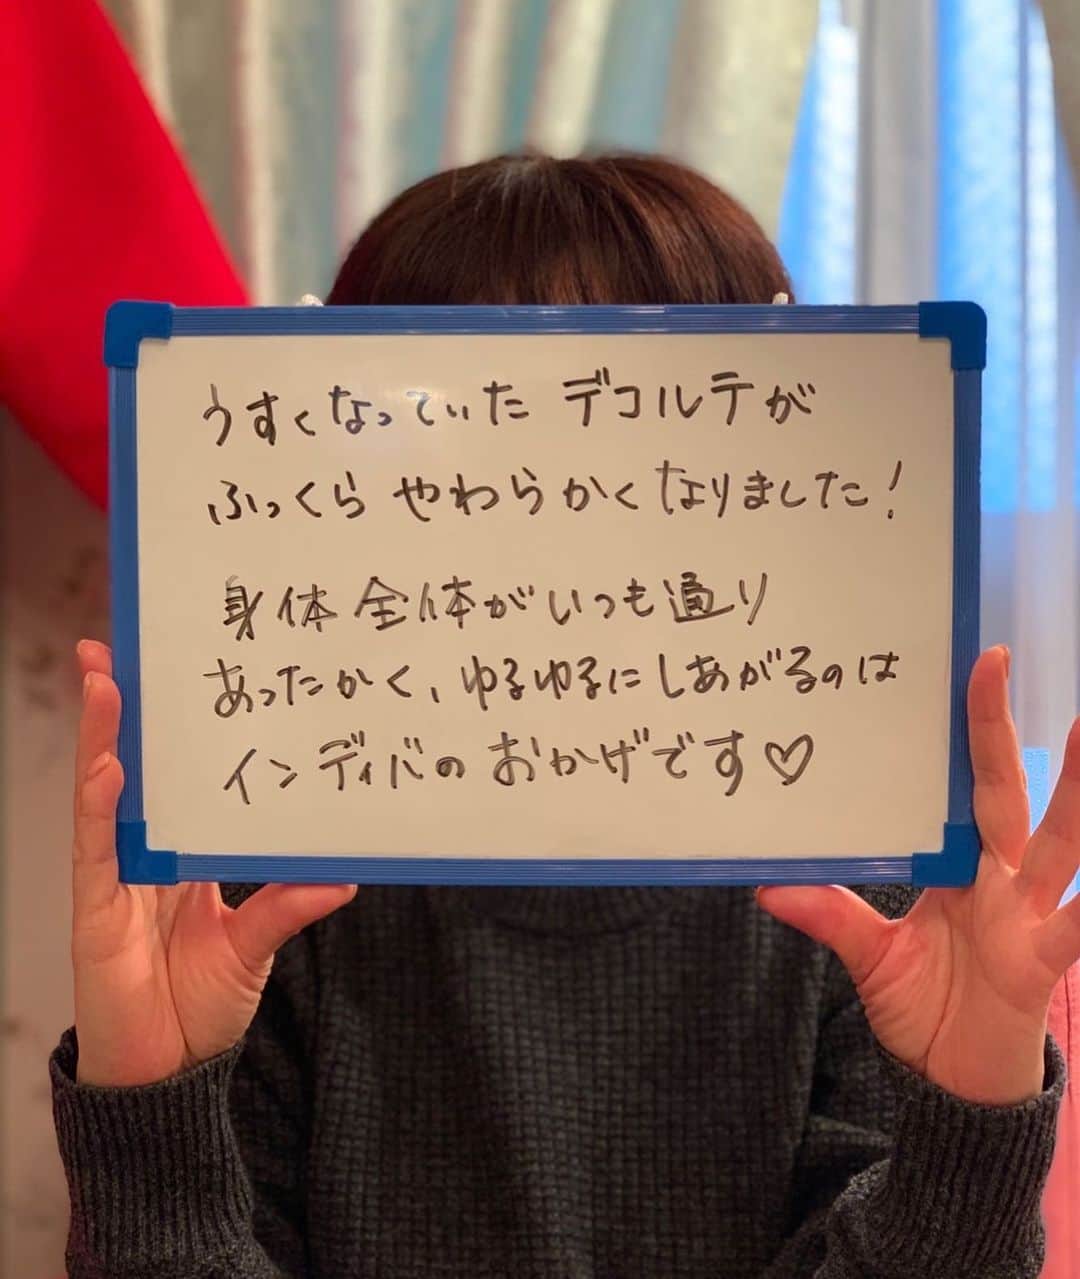 うすくなっていた デコルテが
ふっくら やわらかくなりました!
身体全体がいつも通り
あったかく、ゆるゆるにしあがるのは
インディバのおかげです♡